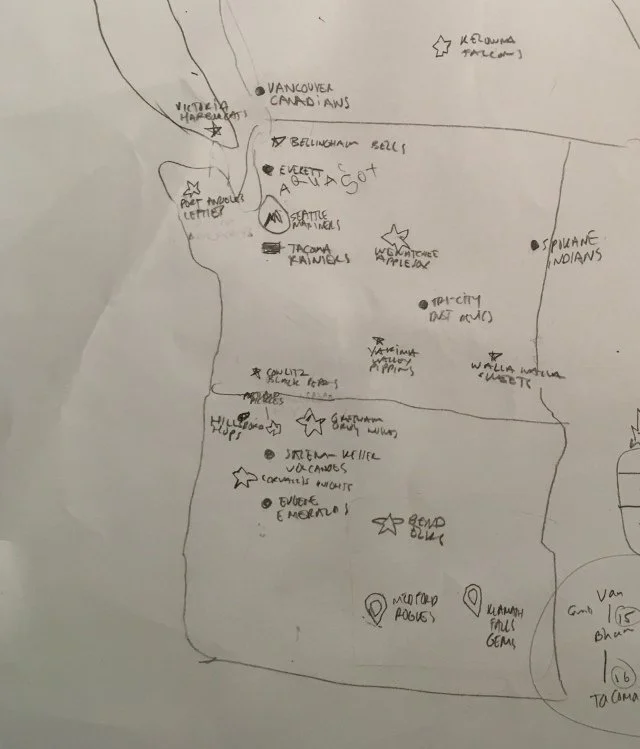 KELOWNA
FALCONS
VANCOUVER
CANADIANS
VICTORIA
HARBOURCATS
BELLINGHAM BELLS
EVERETT
AQUASOX
PORT ANGELES
LEFTIES
SEATTLE
MARINERS
TACOMA
RAINIERS
WENATCHEE
APPLESOX
SPOKANE
INDIANS
TRI-CITY
DUST DEVILS
YAKIMA
VALLEY
PIPPINS
WALLA WALLA
SWEETS
COWLITZ
BLACK BEARS
PICKLES
HILLSBORO
HOPS
GRESHAM
GREY WOLVES
SALEM-KEIZER
VOLCANOES
CORVALLIS KNIGHTS
EUGENE
EMERALDS
BEND
ELKS
MEDFORD
ROGUES
KLAMATH
FALLS
GEMS
Van
15
Bham
16
TACOMA